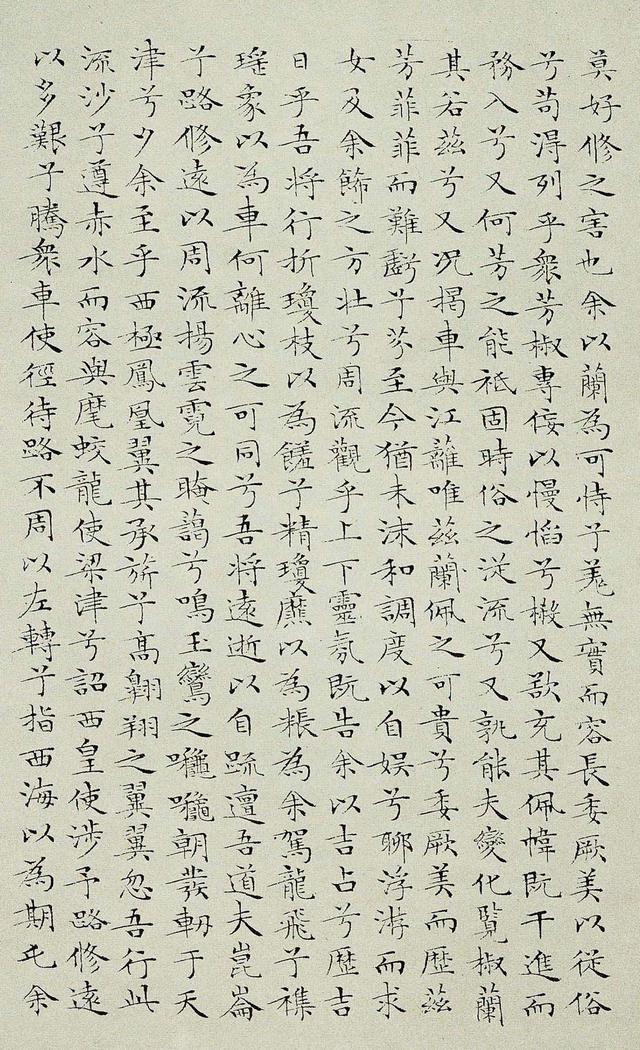 莫好修之害也余以蘭為可恃兮羌無實而容長委厥美以從俗
兮苟得列乎衆芳椒專佞以慢慆兮樧又欲充其佩幃既干進而
務入兮又何芳之能祗固時俗之從流兮又孰能夫變化覽椒蘭
其若茲兮又况揭車與江蘺唯茲蘭佩之可貴兮委厥美而歷茲
芳菲菲而難虧兮芬至今猶未沬和調度以自娛兮聊浮游而求
女及余飾之方壯兮周流觀乎上下靈氛既告余以吉占兮歷吉
日乎吾將行折瓊枝以為饈兮精瓊爢以為粻為余駕龍飛兮襍
瑤象以為車何離心之可同兮吾將遠逝以自疏邅吾道夫崑崙
兮路修遠以周流揚雲霓之晦藹兮鳴玉鸞之啾啾朝發軔于天
津兮夕余至乎西極鳳凰翼其承旂兮高翱翔之翼翼忽吾行此
流沙兮遵赤水而容與麾蛟龍使梁津兮詔西皇使涉予路修遠
以多艱兮騰衆車使徑待路不周以左轉兮指西海以為期屯余